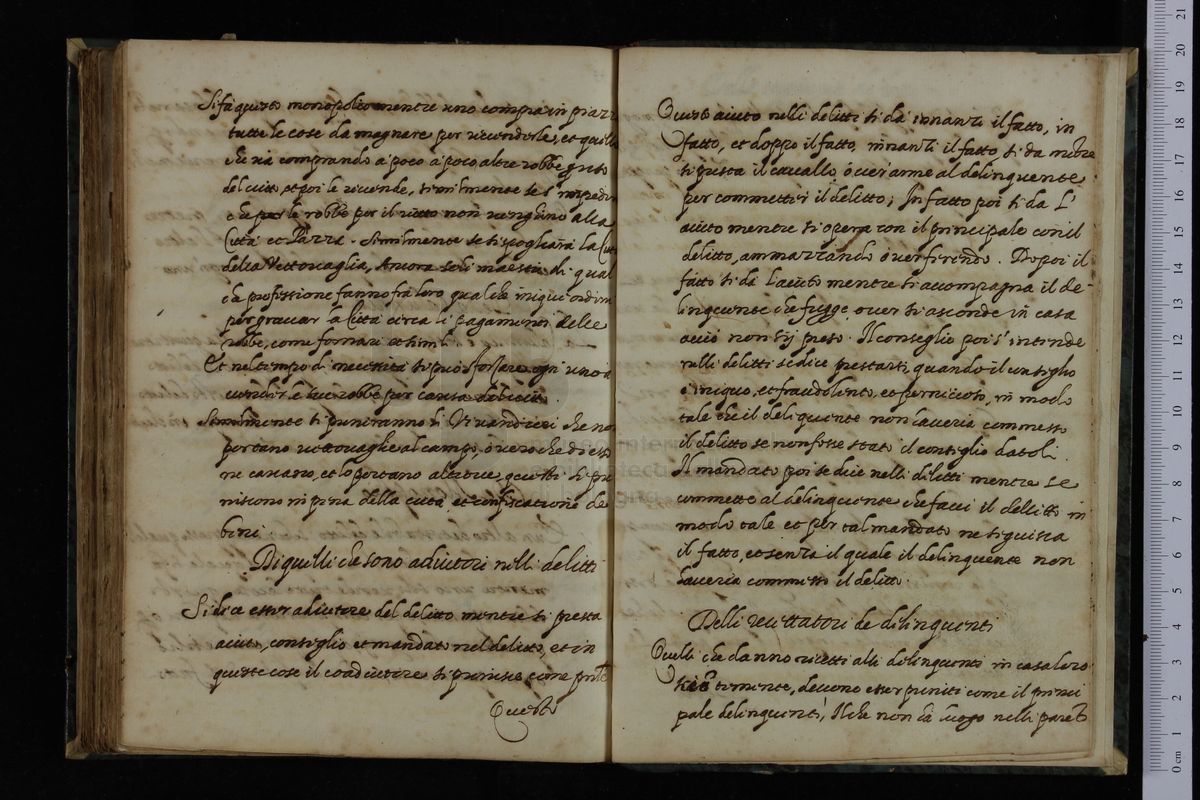 Si fà questo monopolio mentre uno compra in piazz
tutte le cose da magnare per revenderle, et quello
che và comprando a poco à poco altre robbe
del vitto, et poi le revende, similmente se s' impedis
che le robbe per il vitto non venghino alla
Città et Piazza. Similmente se si spogliarà la Citt
della Vettovaglia, Ancora se li maestri di qual
che professione fanno frà loro qualche inique ordin
per gravar la Città circa li pagamenti delle
robbe, come fornari et simili
Et nel tempo di necessità si può sforzare ogni uno à
vender le sue robbe per causa
Similmente si puniranno li Vivandieri che no
portano vettovaglie al campo, ò vero che di esso
ne cavano, et lo portano altrove, questi si pu
niscono in pena della vita et confiscatione de
beni
Di quelli che sono adiutori nelli delitti
Si dice esser adiutore del delitto mentre si presta
aiuto, consiglio et mandato nel delitto, et in
queste cose il coadiutore si punisce come
Questo
Questo aiuto nelli delitti si dà innanzi il fatto, in
fatto, et doppo il fatto, innanzi il fatto si da mentre
si presta il cavallo ò ver arme al delinquente
per commetter il delitto; In fatto poi si da l'
aiuto mentre si opera con il principale con il
delitto, ammazzando ò ver ferendo. Dopoi il
fatto si dà l'aiuto mentre si accompagna il de-
linquente che fugge, over si asconde in casa
acciò non sij preso. Il consiglio poi s' intende
nelli delitti se dice prestarsi quando il consiglio
è iniquo, et fraudolento, et pernicioso, in modo
tale che il delinquente non haveria commesso
il delitto se non fosse stato il consiglio da soli.
Il mandato poi se dice nelli delitti mentre se
commette al delinquente che facci il dellitto in
modo tale et per tal mandato ne seguisca
il fatto, et senza il quale il delinquente non
haveria commesso il delitto.
Delli recettatori de delinquenti
Quelli che danno ricetti alli delinquenti in casa loro
devono esser puniti come il princi
pale delinquenti, Il che non hà luogo nelli parenti